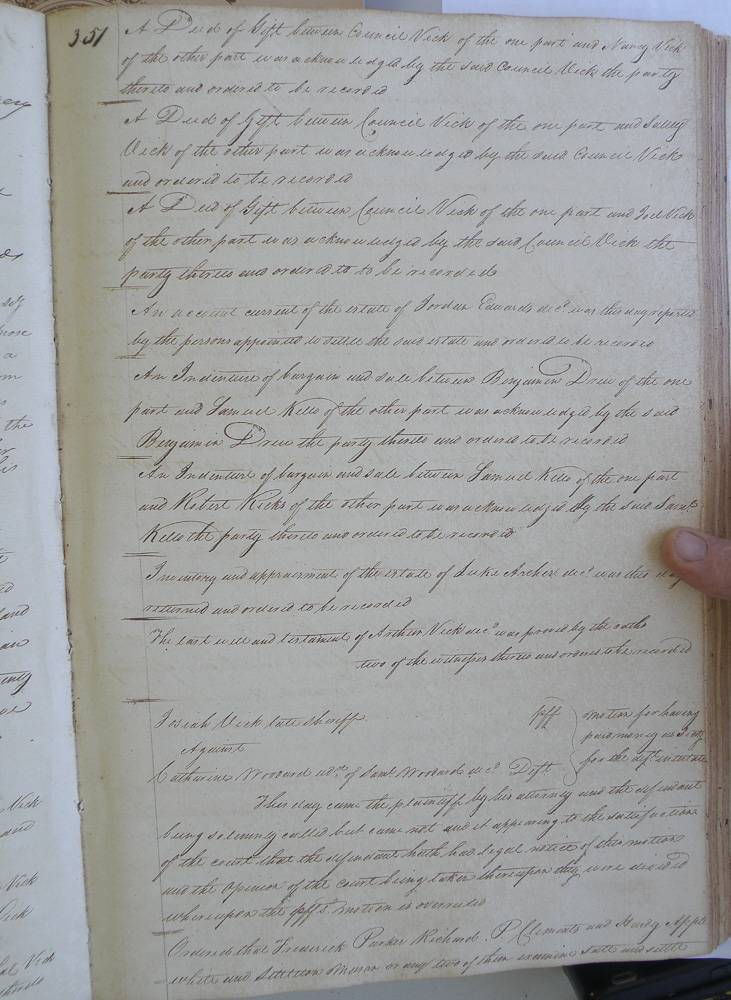 351
A Deed of Gift between Council Vick of the one part and Nancy Vick
of the other part was acknowledged by the said Council Vick the party
thereto and ordered to be recorded
A Deed of Gift between Council Vick of the one part and Salley
Vick of the other part was acknowledged by the said Council Vick
and ordered to be recorded
A Deed of Gift between Council Vick of the one part and Joel Vick
of the other part was acknowledged by the said Council Vick the
party thereto and ordered to to be recorded
An account current of the estate of Jordan Edwards decd. was this day reported
by the persons appointed to settle the said estate and ordered to be recorded
An Indenture of bargain and sale between Benjamin Drew of the one
part and Samuel Kello of the other part was acknowledged by the said
Benjamin Drew the party thereto and ordered to be recorded
An Indenture of bargain and sale between Samuel Kello of the one part
and Robert Ricks of the other part was acknowledged by the said Saml.
Kello the party thereto and ordered to be recorded
Inventory and appraisement of the estate of Luke Archer decd. was this day
returned and ordered to be recorded
The last will and testament of Arthur Vick decd. was proved by the oaths
two of the witnesses thereto and ordered to be recorded
Josiah Vick late Sheriff plff motion for having
Against paid money as
Catharine Woodard of Saml. Woodard decd. Deft for the defts intestate
This day came the plaintiff by his attorney and the defendant
being solemnly called but came not and it appearing to the satisfaction
of the court that the defendant hath had legal notice of this motion
and the opinion of the court being taken thereupon they were divided
whereupon the plffs motion is overruled
Ordered that Frederick Parker Richard P. Clements and Hardy Apple
white and or any two of them examine state and settle